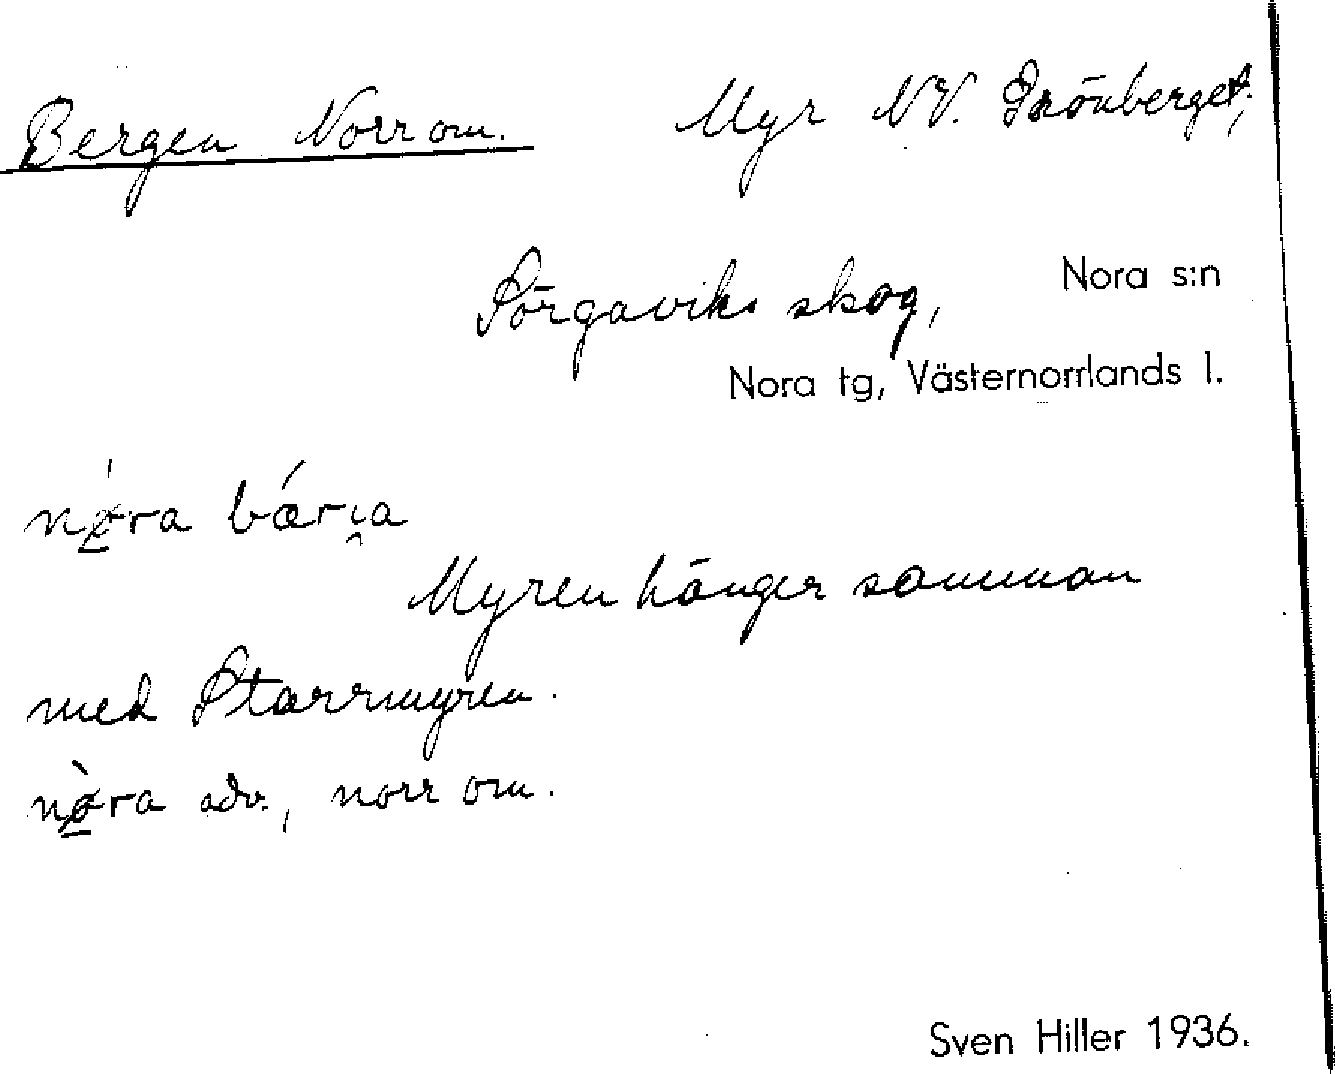 Bergen Norr om. Myr NV. Snönberget,
Sörgaviks skog, Nora s:n
Nora tg, Västernorrlands l.
nǿ̱ra bǽri̯a
Myren hänger samman
med Starrmyren.
nø̱̀ra adv., norr om.
Sven Hiller 1936.